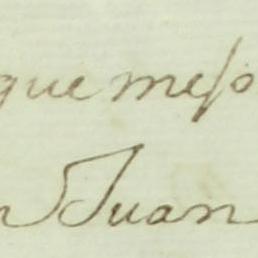 que meso
n Juan